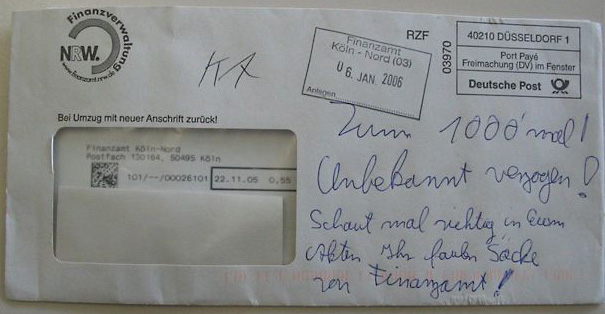 Finanzverwaltung
NRW.
www.finanzamt.nrw.de
KA
RZF
Finanzamt
Köln - Nord (03)
06. JAN. 2006
Anlagen
03970
40210 DÜSSELDORF 1
Port Payé
Freimachung (DV) im Fenster
Deutsche Post
Bei Umzug mit neuer Anschrift zurück!
Finanzamt Köln-Nord
Postfach 130164, 50495 Köln
101/--/00026101 22.11.05 0,55
Zum 1000 mal!
Unbekannt verzogen!
Schaut mal richtig in Euren
Akten Ihr faulen Säcke
von Finanzamt!